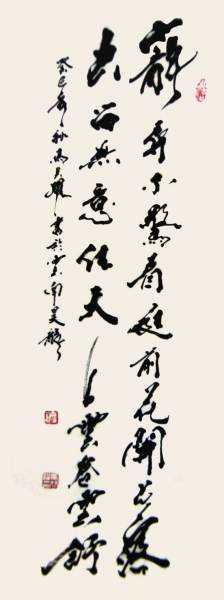 寵辱不驚看庭前花開花落
去留無意任天上雲卷雲舒
癸巳年秋馬書於雲南